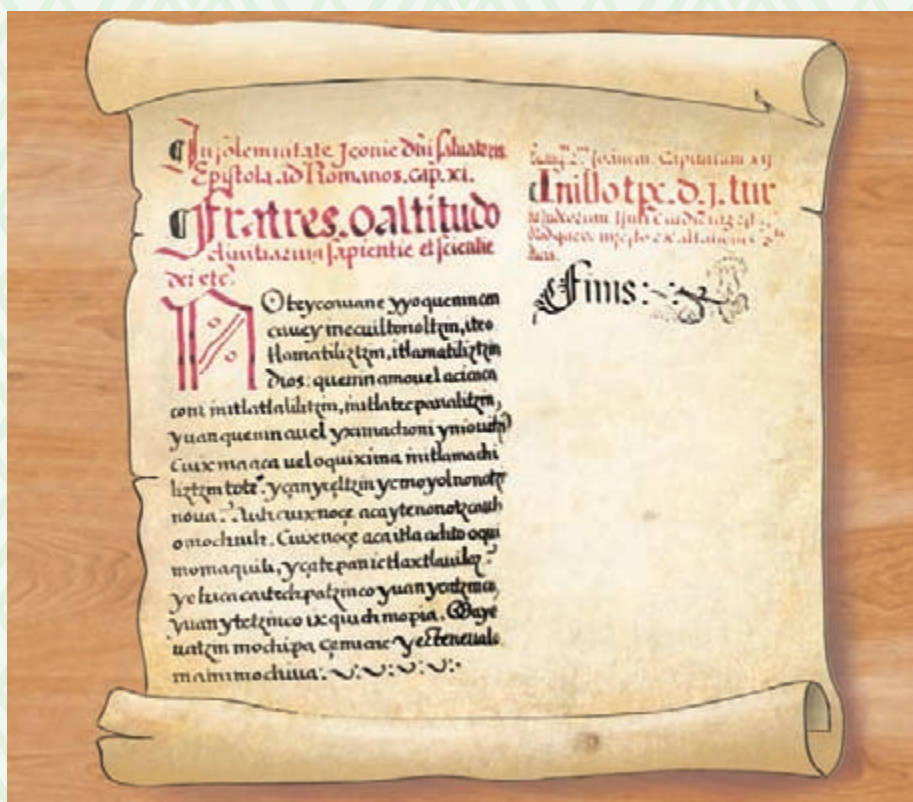 In solemnitate Iconie dñi saluatoris
Epistola ad Romanos. cap. xi.
Fratres. o altitudo
diuitiarum sapientie et scientie
dei etc.
O teycouane yyo quenin can
cauey inecuiltonoltzin, iteo
tlamatiliztzin, itlamatiliztzin
dios: quenin amo uel acicaca
coni initlatlaliltzin, initlatecpanalitzin,
yuan quenin auel yximachoni yniouh
Cuix ma aca uel oquixima initlamachi
liztzin tote. ycanyceltzin ycmoyolnonotz
noua. Auh cuix noçe aca ytenonotzcauh
omochiuh. Cuix noçe aca itla achto oqui
momaquili, yçatepan ic tlaxtlauiloz
yehica ca itechpatzinco yuan ycatzinco,
yuan ytetzinco ixquich mopia. Maye
uatzin mochipa çemicac yecteneualo
ma in mochiua:
Ioannem. Capitulum xij
In illo tpe. d. j. tur
bis iudeorum
exaltatus
Finis: